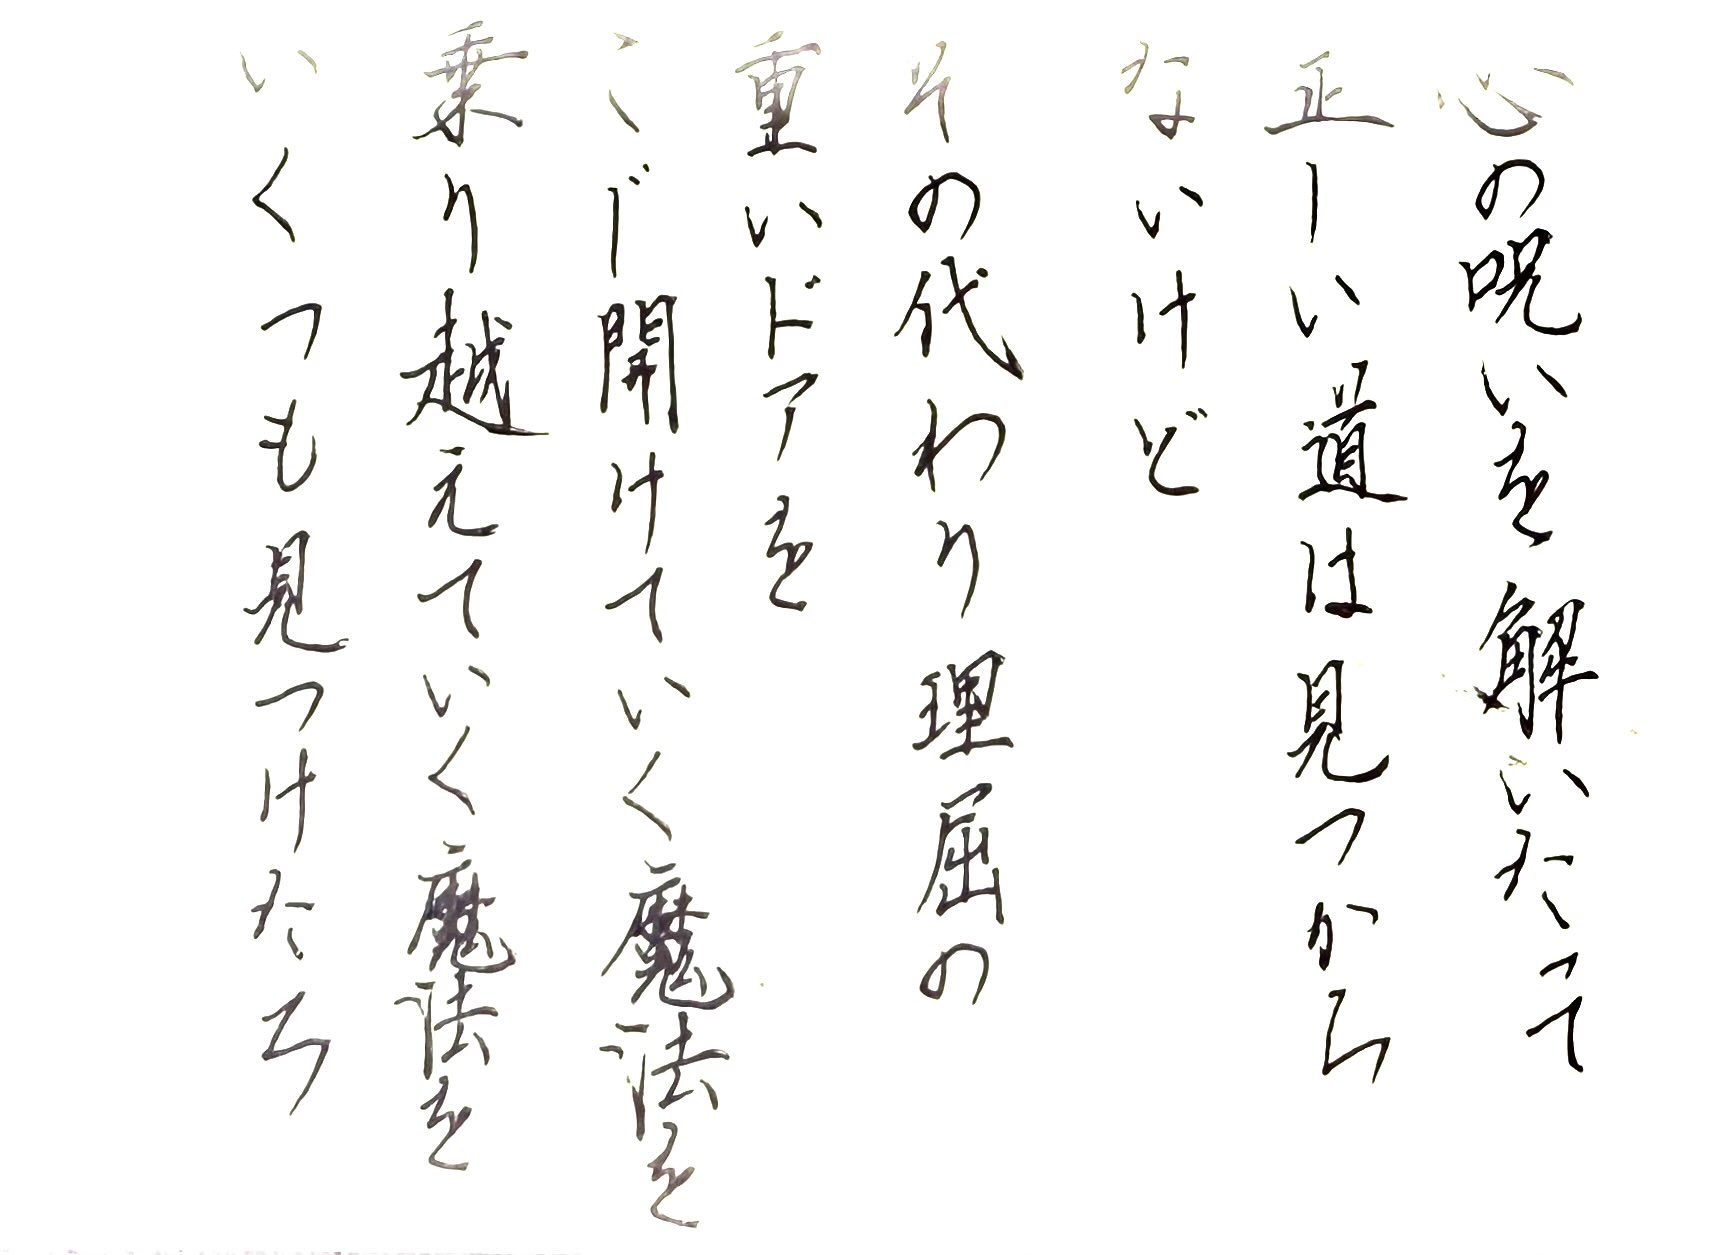 心の呪いを解いたって
正しい道は見つから
ないけど
その代わり理屈の
重いドアを
こじ開けていく魔法を
乗り越えていく魔法を
いくつも見つけたろ